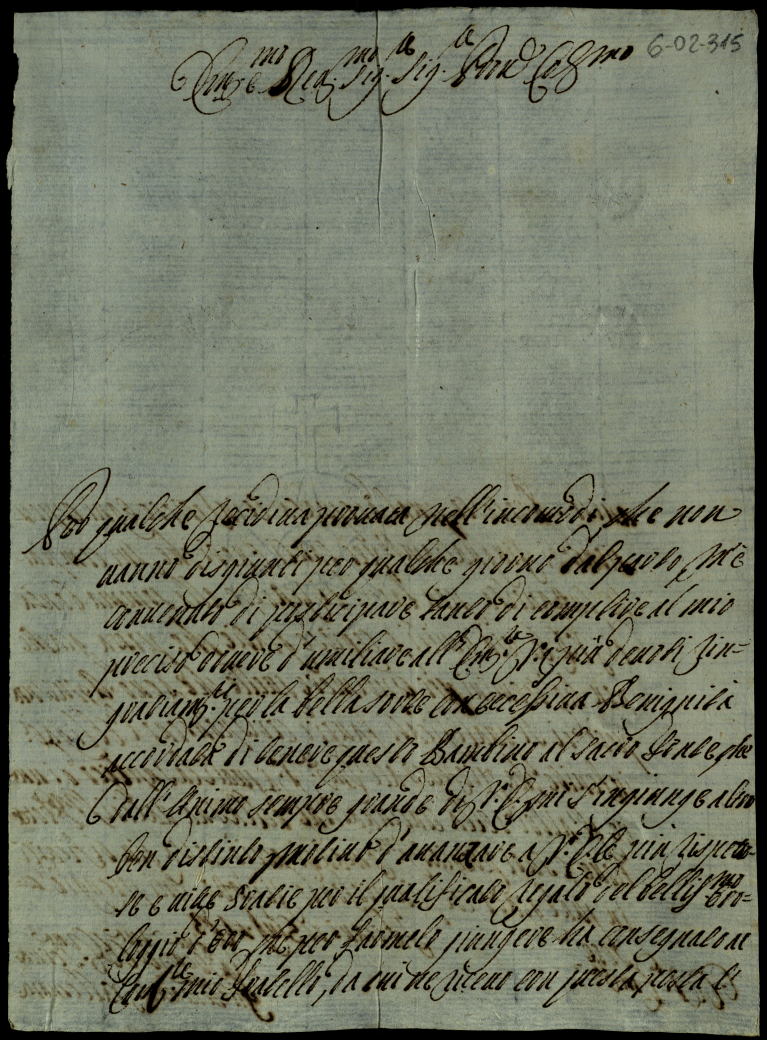 6-02-315
Em.mo Rev.mo Sig.re Sig.re Pad. Col.mo
Per qualche recidiva provata nell'incomodi, che non
hanno disgiunti per qualche giorno dal parto, m'è
convenuto di partecipare tardo di complire al mio
preciso dovere d'umiliare all'Em.za V. i più devoti rin-
graziam.ti per la bella sorte con eccessiva Benignità
accordata di tenere questo Bambino al Sacro Fonte, che
dall'Animo sempre grande di V. Em. mi s'ingiunge altro
ben distinto motivo d'avanzare a V. Em. le più rispetto-
se e vive grazie per il qualificato regalo del bellis.mo oro-
loggio d'oro che per farmelo giungere ha consegnato al
Con.te mio fratello, da cui ne ricevo con questa posta l'